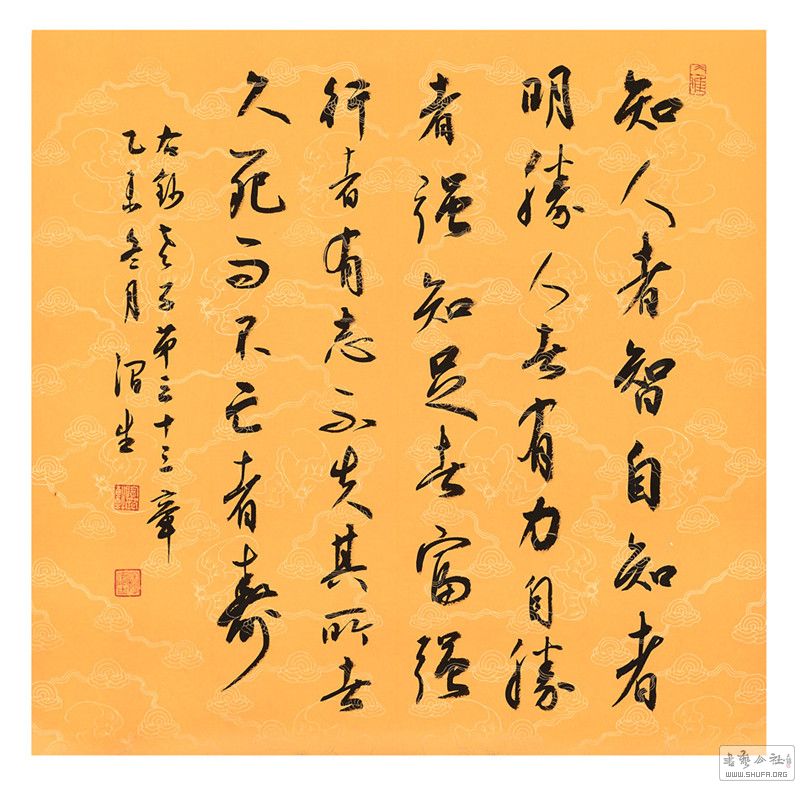 知人者智自知者
明勝人者有力自勝
者强知足者富强
行者有志不失其所者
久死而不亡者壽
右錄老子第三十三章
乙未冬月 渭生
書艺公社
WWW.SHUFA.ORG